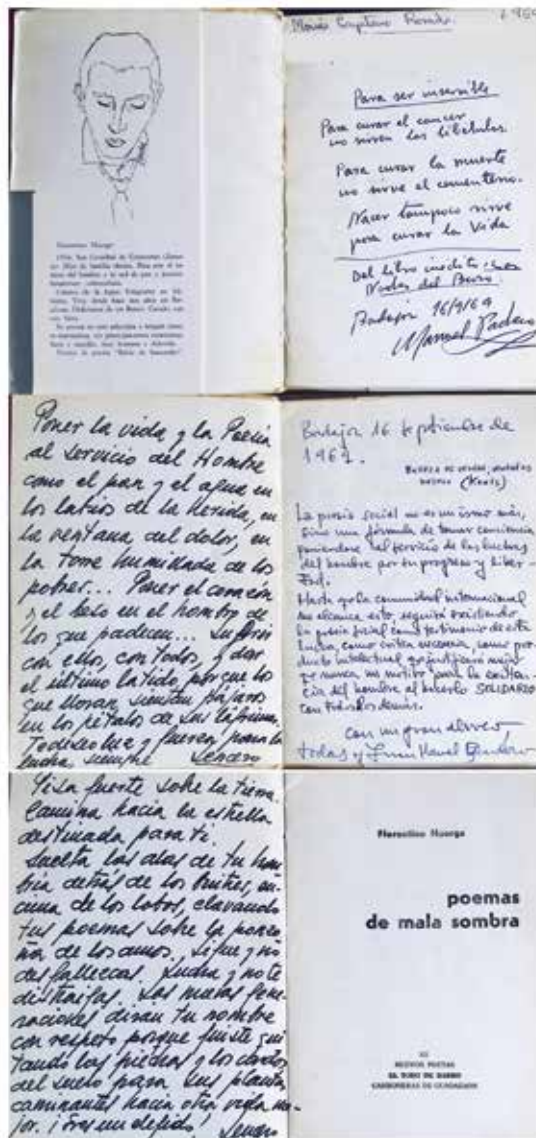 Moisés Cayetano Rosado
1969
Para ser inservible
Para curar el cancer
no sirven las libélulas.
Para curar la muerte
no sirve el cementerio.
Nacer tampoco sirve
para curar la vida
Del libro inédito
Badajoz 16/9/69
Manuel Pacheco
Florentino Huerga
Poner la vida y la Poesía
al servicio del Hombre
como el pan y el agua en
los labios de la herida, en
la ventana del dolor, en
la torre humillada de los
pobres... Poner el corazón
y el beso en el hombro de
los que padecen... Sufrir
con ellos, con todos, y dar
el último latido, porque los
que lloran, sientan pájaros
en los pétalos de sus lágrimas.
Todo es luz y fuerza para la
lucha, siempre
Badajoz 16 septiembre de
1969.
La poesía social no es un ismo más,
sino una fórmula de tomar conciencia
poniéndose al servicio de las luchas
del hombre por su progreso y liber-
tad.
Hasta q. la comunidad internacional
no alcance esto, seguirá existiendo
la poesía social como testimonio de esta
lucha, como crítica necesaria, como pro-
ducto intelectual q. justificará mejor
que nunca, un motivo para la existen-
cia del hombre al hacerlo SOLIDARIO
con todos los demás.
con un gran abrazo,
Pisa fuerte sobre la tierra.
Camina hacia la estrella
destinada para ti.
Suelta las alas de tu hom-
bría detrás de los buitres, en-
cima de los lobos, clavando
tus poemas sobre la ponzo-
ña de los amos. Sigue y no
desfallezcas. Lucha y no te
distraigas. Las nuevas gene-
raciones dirán tu nombre
con respeto porque fuiste qui
tando las piedras y los cardos
del suelo para sus plantas
caminantes hacia otra vida me-
jor. ¡Eres un elegido!
Florentino Huerga
poemas
de mala sombra
NUEVOS POETAS
EL TORO DE BARRO
CARBONERAS DE GUADAZAON